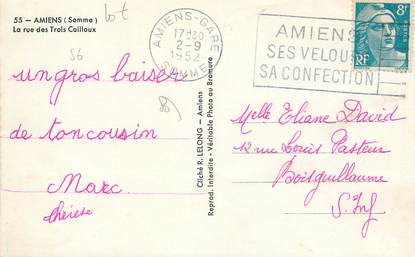 55 - AMIENS (Somme)
La rue des Trois Cailloux
lot
56
un gros baiser
de ton cousin
Marc.
thérèse
Cliché R. LELONG - Amiens
Reprod. Interdite - Véritable Photo au Bromure
AMIENS-GARE
17H30
2-9
1952
SOMME
AMIENS
SES VELOURS
SA CONFECTION
8F
RF
Melle Eliane David
12 rue Louis Pasteur
Boisguillaume
S. Inf